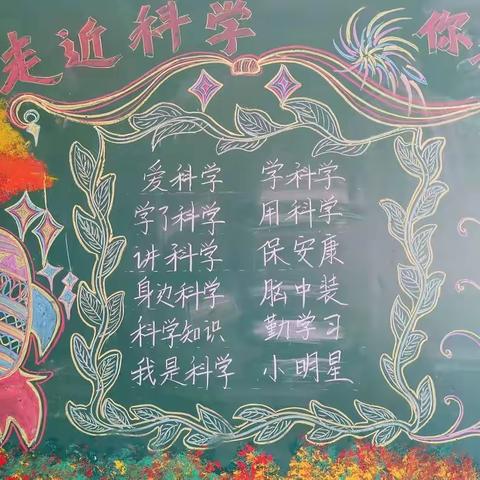 走近科学 你
爱科学 学科学
学了科学 用科学
讲科学 保安康
身边科学 脑中装
科学知识 勤学习
我是科学 小明星